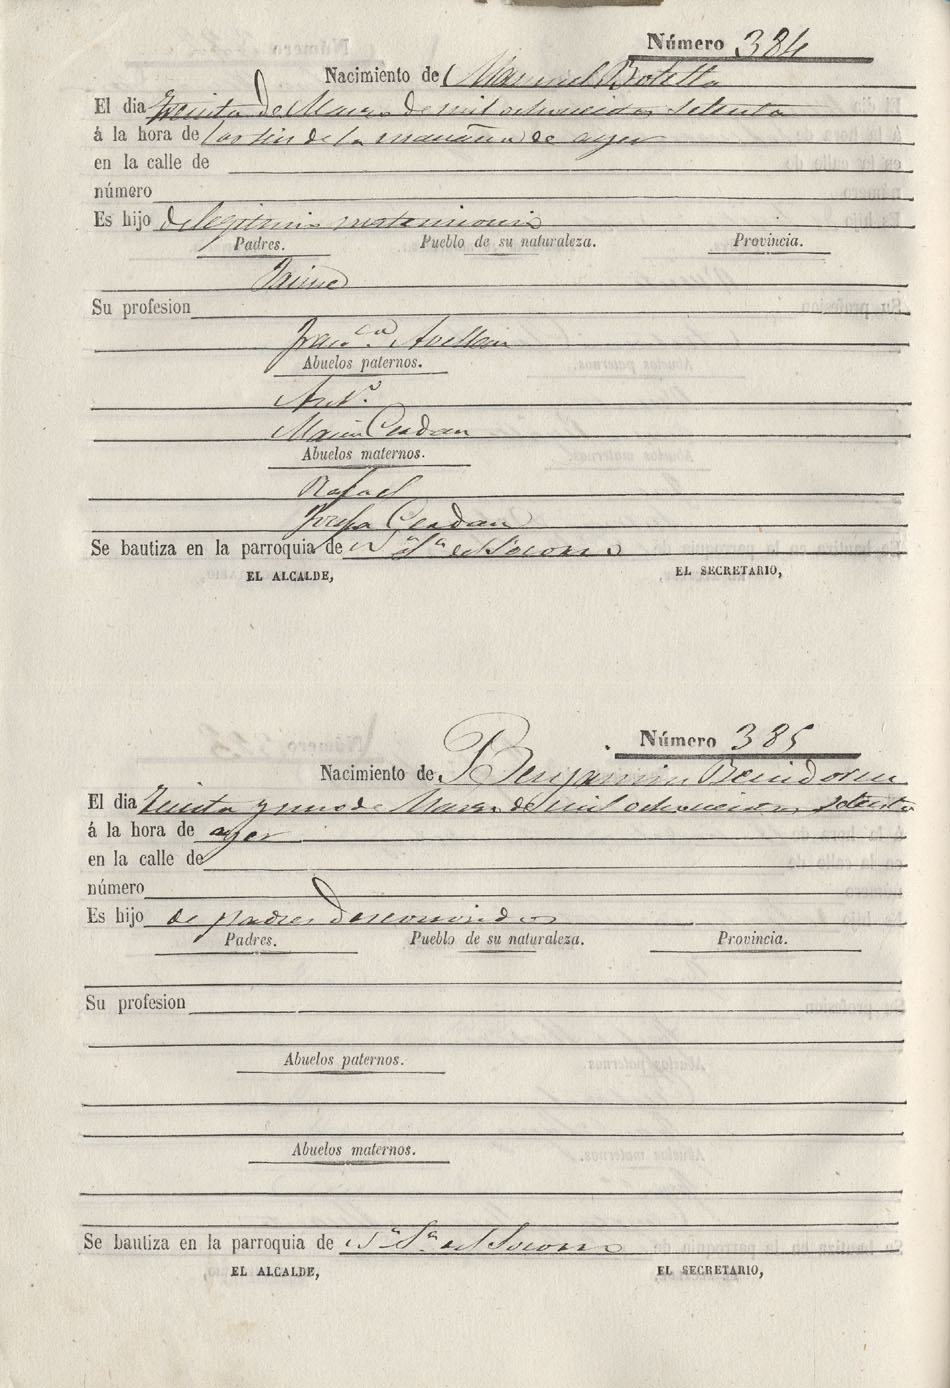 Número 384
Nacimiento de Manuel Botella
El dia treinta de Marzo de mil ochocientos setenta
á la hora de las seis de la mañana de ayer
en la calle de
número
Es hijo de legitimo matrimonio
Padres. Pueblo de su naturaleza. Provincia.
Jaime
Su profesion
Franca. Avellan
Abuelos paternos.
Anto.
Maria Cerdan
Abuelos maternos.
Rafael
Josefa Cerdan
Se bautiza en la parroquia de Na. Sa. del Socorro
EL ALCALDE, EL SECRETARIO,
Número 385
Nacimiento de Benjamin Benidorm
El dia treinta y uno de Marzo de mil ochocientos setenta
á la hora de ayer
en la calle de
número
Es hijo de padres desconocidos
Padres. Pueblo de su naturaleza. Provincia.
Su profesion
Abuelos paternos.
Abuelos maternos.
Se bautiza en la parroquia de Na. Sa. del Socorro
EL ALCALDE, EL SECRETARIO,